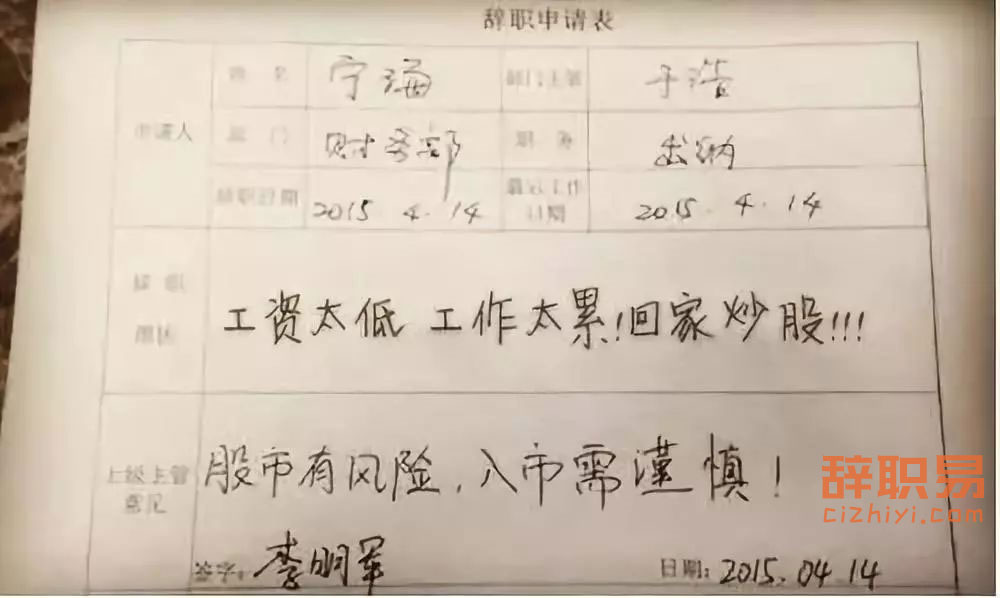 辞职申请表
姓名 宁海 部门主管 于浩
申请人
部门 财务部 职务 出纳
辞职日期 2015.4.14 最后工作日期 2015.4.14
辞职原因
工资太低 工作太累!回家炒股!!!
上级主管意见
股市有风险,入市需谨慎!
签字: 李明军 日期: 2015.04.14
辞职易
cizhiyi.com